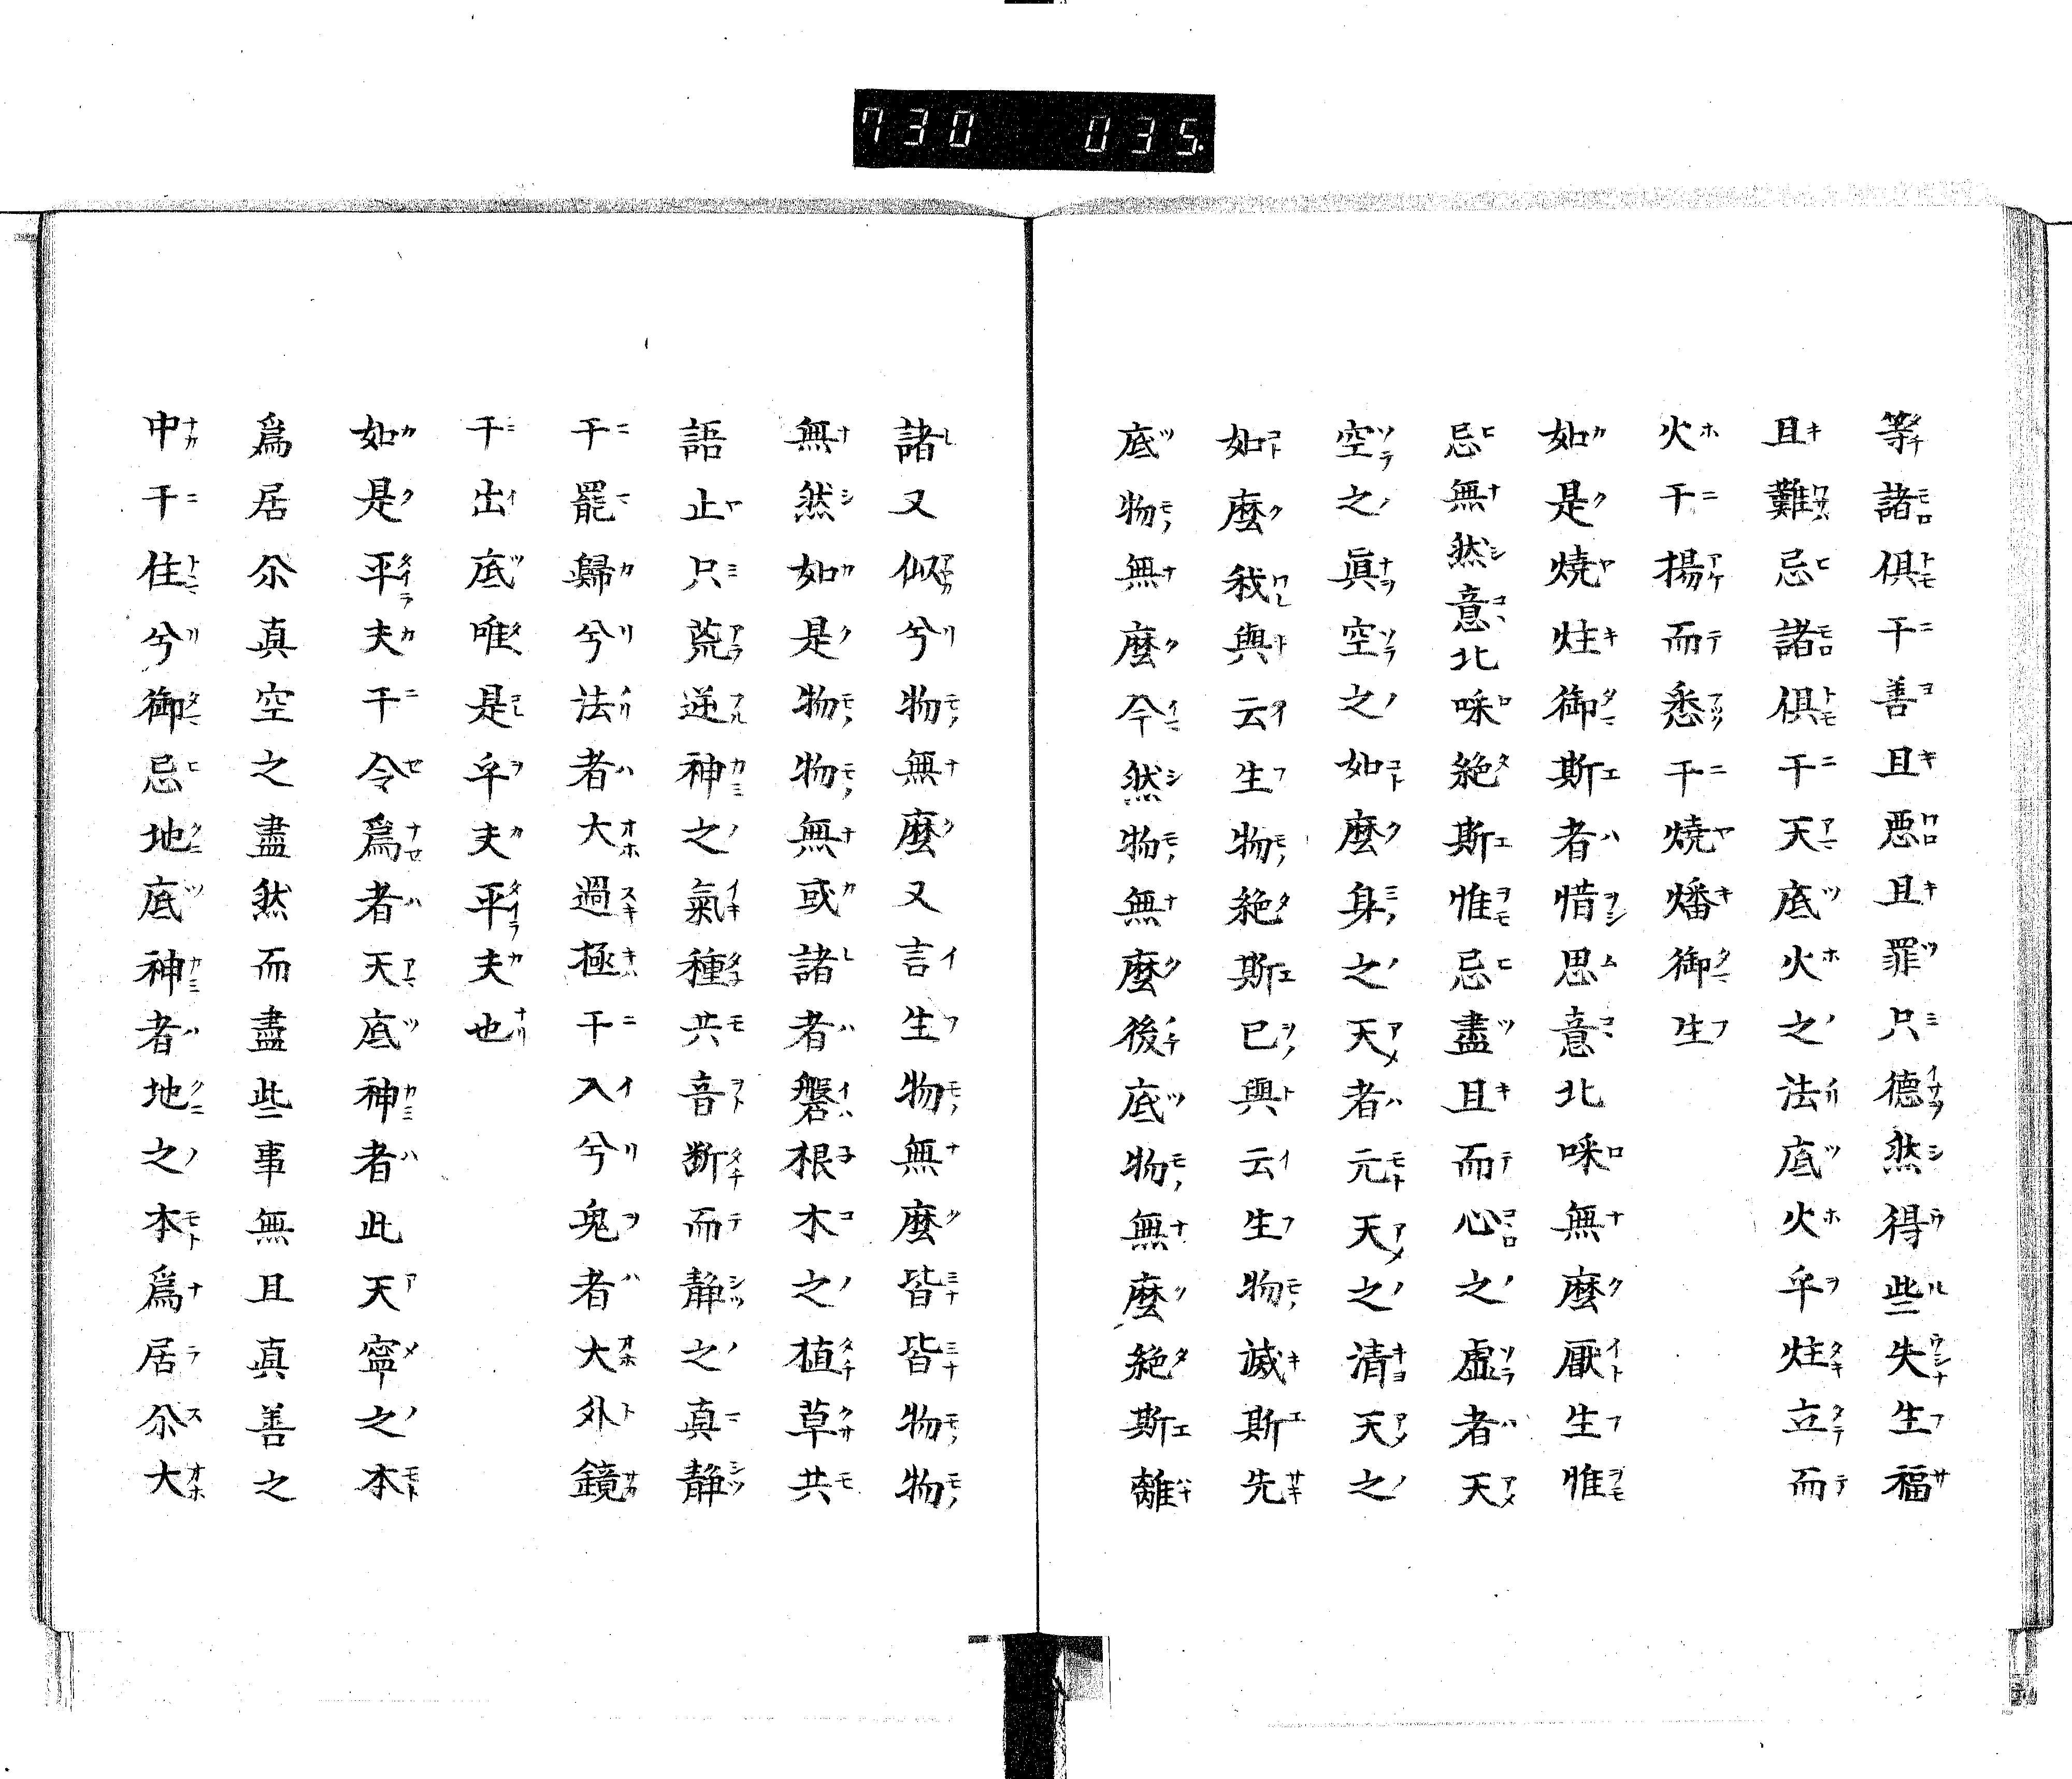 730 035
等諸俱于善且悪且罪只德然得些失生福
且難忌諸俱于天底火之法底火乎炷立而
火于揚而悉于燒燔御生
如是燒炷御斯者惜思意北哚無麼厭生惟
忌無然意北哚絶斯惟忌盡且而心之虛者天
空之眞空之如麼身之天者元天之清天之
如麼我與云生物絶斯已與云生物滅斯先
底物無麼今然物無麼後底物無麼絶斯離
諸又似兮物無麼又言生物無麼皆皆物物
無然如是物物無或諸者磐根木之植草共
語止只荒逆神之氣種共音断而静之真静
于罷歸兮法者大過極于入兮鬼者大外鏡
于出底唯是乎夫平夫也
如是平夫于令爲者天底神者此天寧之本
爲居尒真空之盡然而盡些事無且真善之
中于住兮御忌地底神者地之本爲居尒大